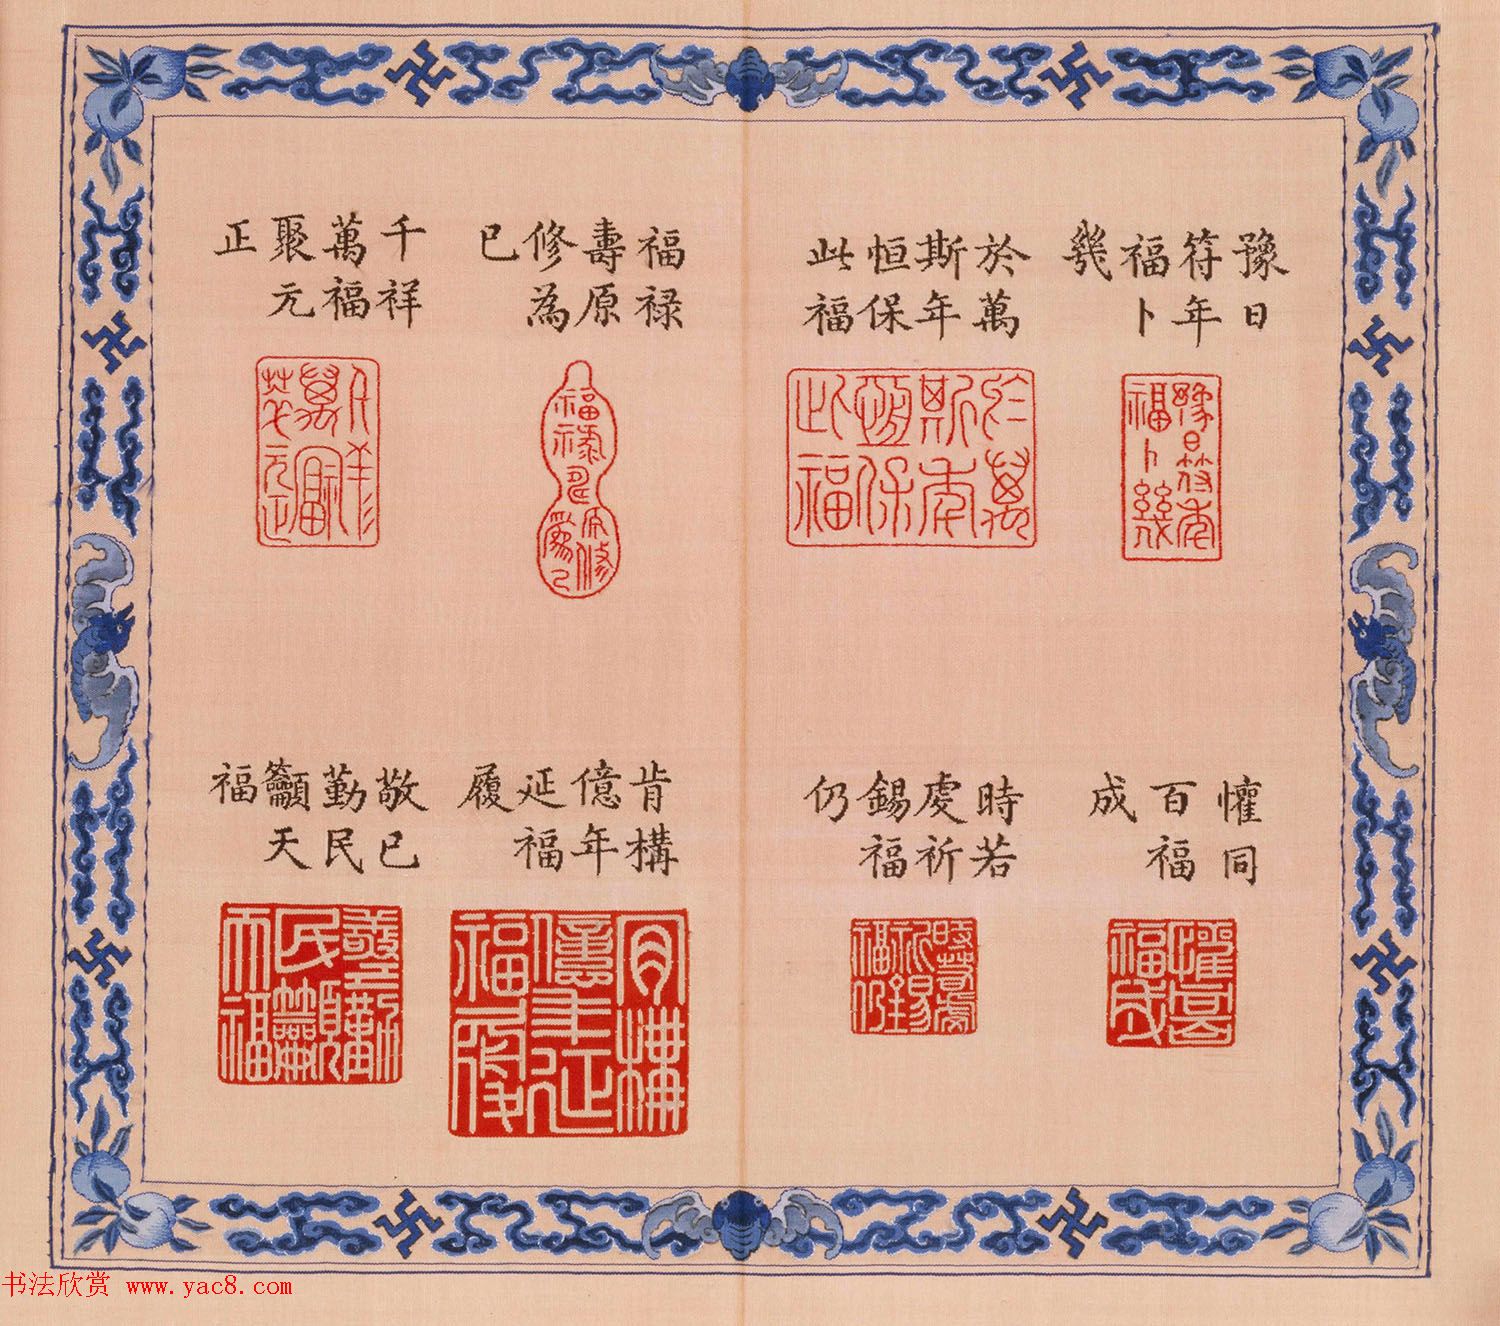 豫日
符年
福卜
幾
於萬
斯年
恒保
此福
福禄
壽原
修為
已
千祥
萬福
聚元
正
懽同
百福
成
時若
虔祈
錫福
仍
肯構
億年
延福
履
敬已
勤民
籲天
福
书法欣赏 www.yac8.com